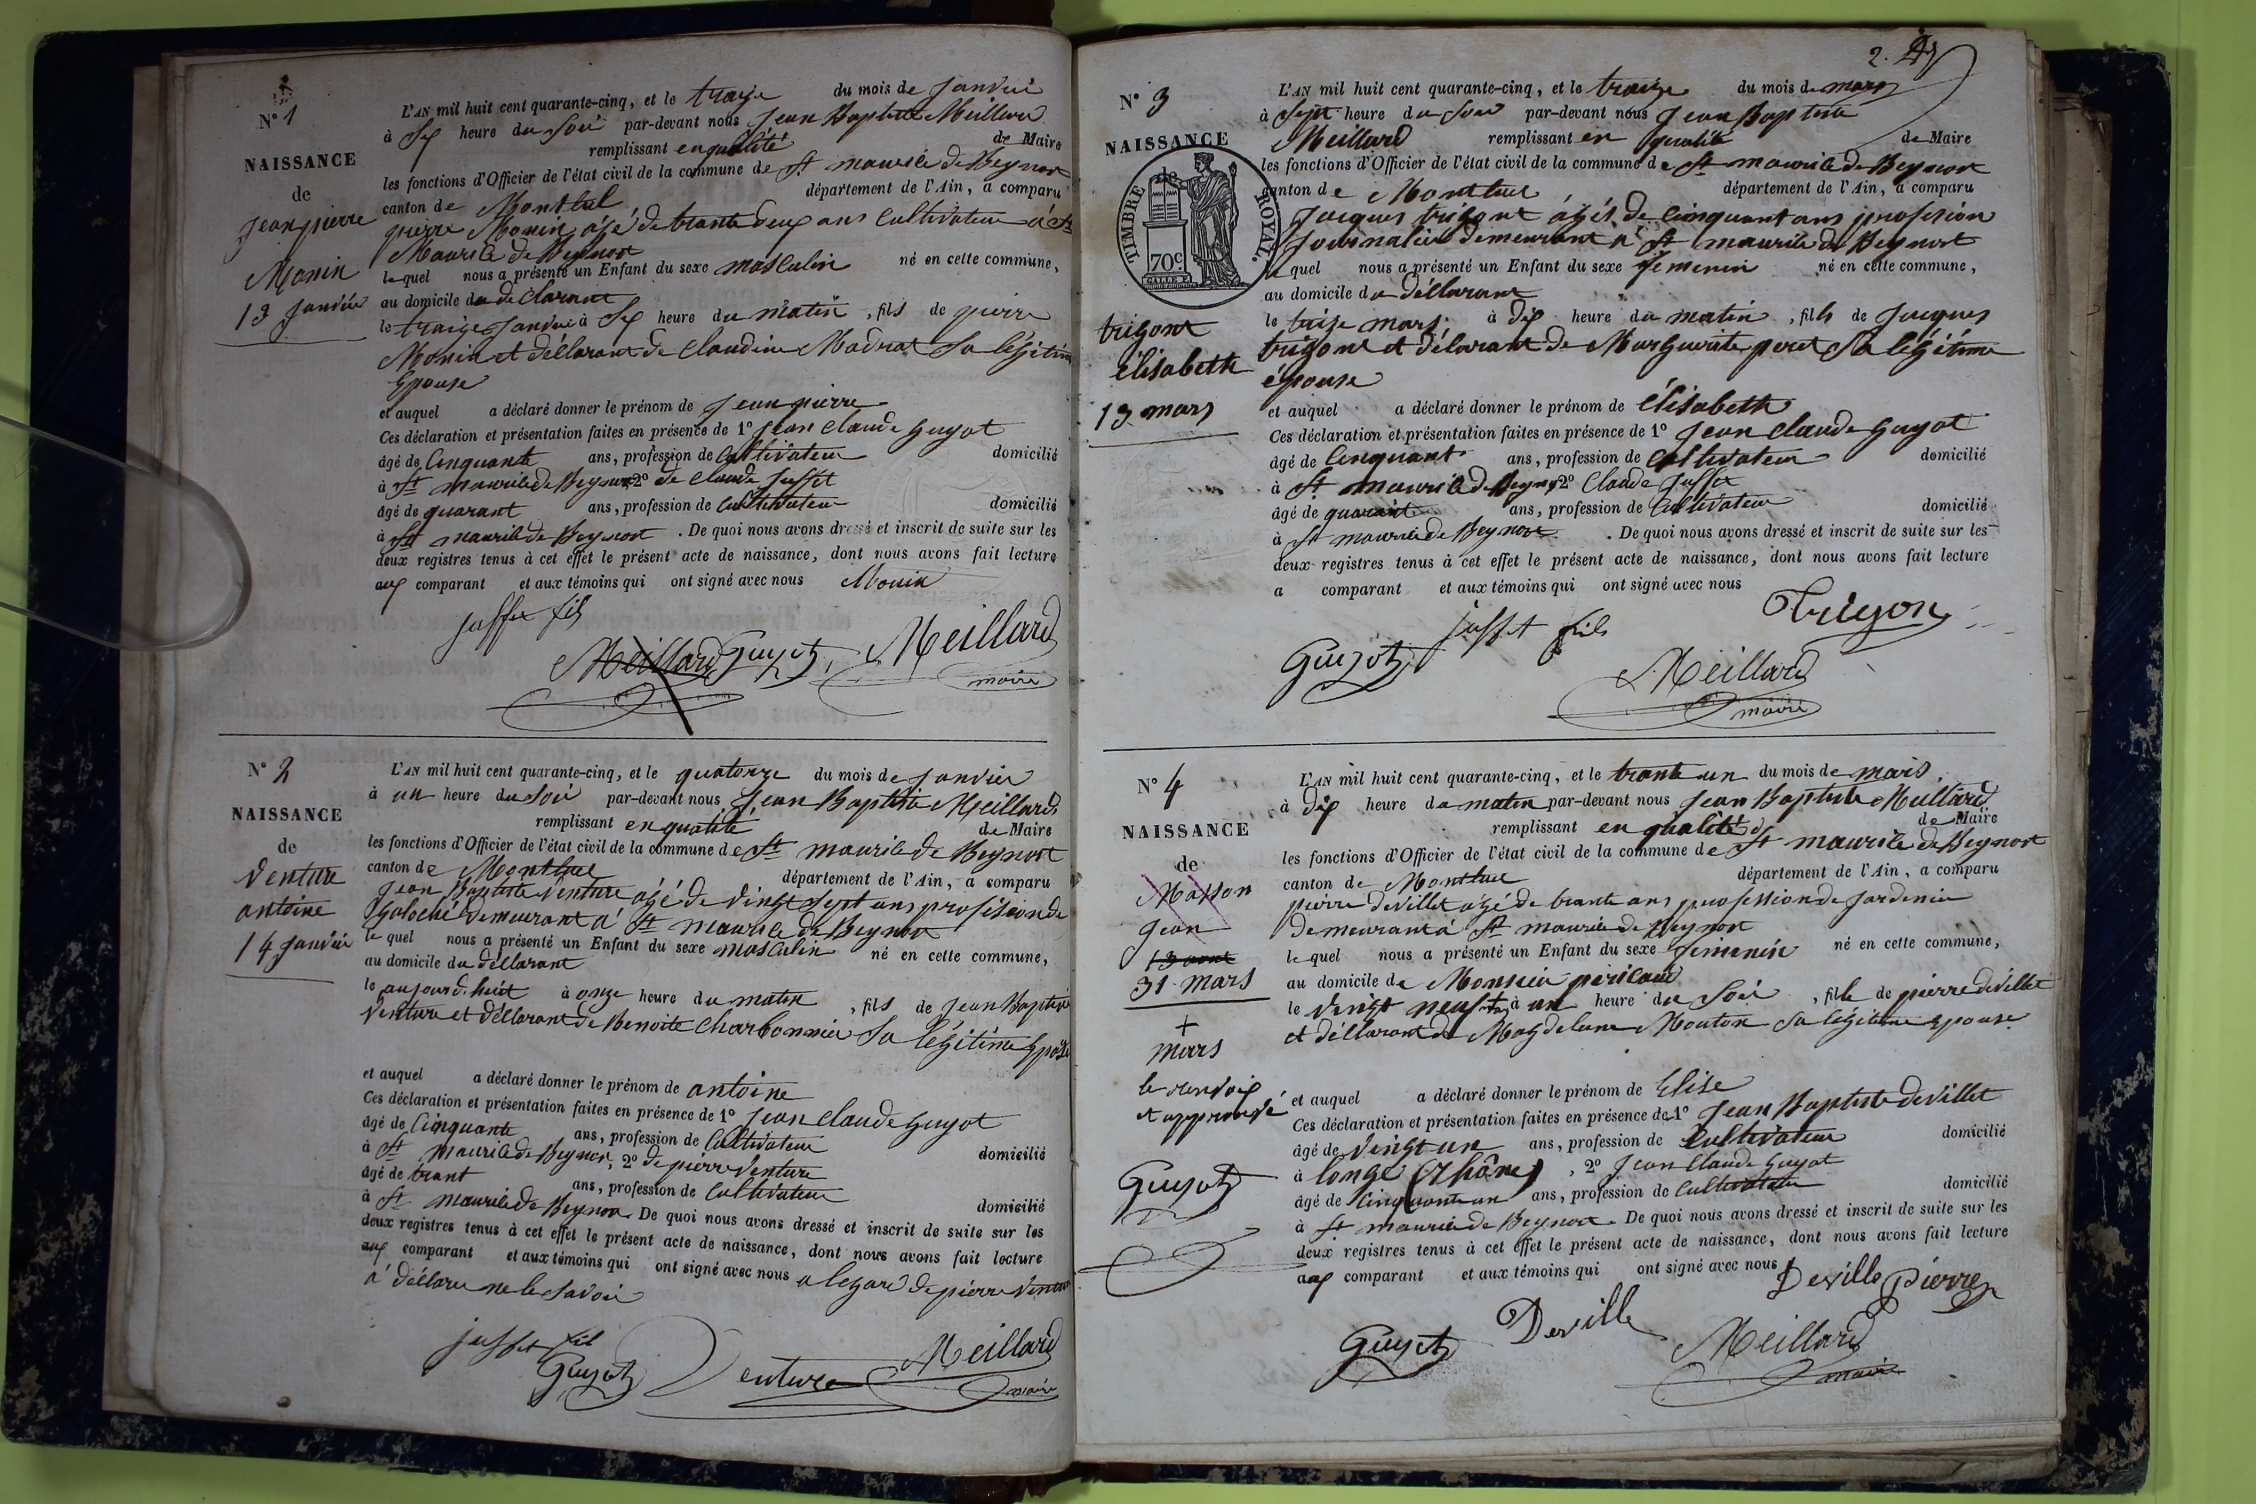 N° 1
NAISSANCE
de
Jean pierre
Monin
13 Janvier
L'AN mil huit cent quarante-cinq, et le traize du mois de Janvié
à Six heure du Soir par-devant nous Jean Baptiste Meillard
remplissant en qualité de Maire
les fonctions d'Officier de l'état civil de la commune de St maurice de Beynost
canton de Montluel département de l'Ain, a comparu
pierre Monin âgé de trante deux ans Cultivateur à St
Maurice de Beynost
lequel nous a présenté un Enfant du sexe masculin né en cette commune,
au domicile du déclarant
le traize Janvié à Six heure du matin, fils de pierre
Monin et déclarant de Claudine Madrat Sa légitime
Epouse
et auquel a déclaré donner le prénom de Jean pierre
Ces déclaration et présentation faites en présence de 1° Jean Claude Guyot
âgé de Cinquante ans, profession de Cultivateur domicilié
à St maurice de Beynost 2° de Claude Juffet
âgé de quarant ans, profession de Cultivateur domicilié
à St maurice de Beynost. De quoi nous avons dressé et inscrit de suite sur les
deux registres tenus à cet effet le présent acte de naissance, dont nous avons fait lecture
aux comparant et aux témoins qui ont signé avec nous Monin
Juffet fils
Meillard Guyot Meillard
maire
N° 2
NAISSANCE
de
Venture
antoine
14 Janvier
L'AN mil huit cent quarante-cinq, et le quatorze du mois de Janvier
à un heure du Soir par-devant nous Jean Baptiste Meillard
remplissant en qualité de Maire
les fonctions d'Officier de l'état civil de la commune de St maurice de Beynost
canton de Montluel département de l'Ain, a comparu
Jean Baptiste Venture âgé de Vingt Sept ans profession de
Galoché Demeurant à St maurice de Beynost
lequel nous a présenté un Enfant du sexe masculin né en cette commune,
au domicile du déclarant
le aujourd'huit à onze heure du matin, fils de Jean Baptiste
Venture et déclarant de Benoite Charbonnier Sa légitime Epouse
et auquel a déclaré donner le prénom de antoine
Ces déclaration et présentation faites en présence de 1° Jean Claude Guyot
âgé de Cinquante ans, profession de Cultivateur
à St maurice de Beynost, 2° de pierre Venture domicilié
âgé de trant ans, profession de Cultivateur
à St maurice de Beynost. De quoi nous avons dressé et inscrit de suite sur les domicilié
deux registres tenus à cet effet le présent acte de naissance, dont nous avons fait lecture
aux comparant et aux témoins qui ont signé avec nous a legard de pierre Venture
a déclaré ne le Savoir
Juffet fil
Guyot Venture Meillard
maire
2.
N° 3
NAISSANCE
de
TIMBRE ROYAL.
70c
trigont
élisabeth
13 mars
L'AN mil huit cent quarante-cinq, et le traize du mois de mars
à Sept heure du Soir par-devant nous Jean Baptiste
Meillard remplissant en qualité de Maire
les fonctions d'Officier de l'état civil de la commune de St maurice de Beynost
canton de Montluel département de l'Ain, a comparu
Jacques trigont âgés de Cinquant ans profession
Journalier demeurant à St maurice de Beynost
lequel nous a présenté un Enfant du sexe féminin né en cette commune,
au domicile du déclarant
le traize mars à dix heure du matin, fille de Jacques
trigont et déclarant de Marguerite peret Sa légitime
épouse
et auquel a déclaré donner le prénom de élisabeth
Ces déclaration et présentation faites en présence de 1° Jean Claude Guyot
âgé de Cinquant ans, profession de Cultivateur domicilié
à St maurice de Beynost 2° Claude Juffet
âgé de quarant ans, profession de Cultivateur domicilié
à St maurice de Beynost. De quoi nous avons dressé et inscrit de suite sur les
deux registres tenus à cet effet le présent acte de naissance, dont nous avons fait lecture
a comparant et aux témoins qui ont signé avec nous
Trigon
Guyot Juffet fils
Meillard
maire
N° 4
NAISSANCE
de
Masson
Jean
13 aout
31 mars
+
mars
le renvois
et approuvé
Guyot
L'AN mil huit cent quarante-cinq, et le trante un du mois de mars
à dix heure du matin par-devant nous Jean Baptiste Meillard
remplissant en qualité de Maire
les fonctions d'Officier de l'état civil de la commune de St maurice de Beynost
canton de Montluel département de l'Ain, a comparu
pierre Devillet âgé de trante ans profession de Jardenier
demeurant à St maurice de Beynost
lequel nous a présenté un Enfant du sexe féminin né en cette commune,
au domicile de Monsieur pericaud
le Vingt neuf + à un heure du Soir, fille de pierre devillet
et déclarant de Magdelaine Mouton Sa légitime Epouse
et auquel a déclaré donner le prénom de Elise
Ces déclaration et présentation faites en présence de 1° Jean Baptiste devillet
âgé de Vingt un ans, profession de Cultivateur domicilié
à Longe (Rhône), 2° Jean Claude Guyot
âgé de Cinquante un ans, profession de Cultivateur domicilié
à St maurice de Beynost. De quoi nous avons dressé et inscrit de suite sur les
deux registres tenus à cet effet le présent acte de naissance, dont nous avons fait lecture
aux comparant et aux témoins qui ont signé avec nous
Deville Pierre
Guyot Deville Meillard
maire